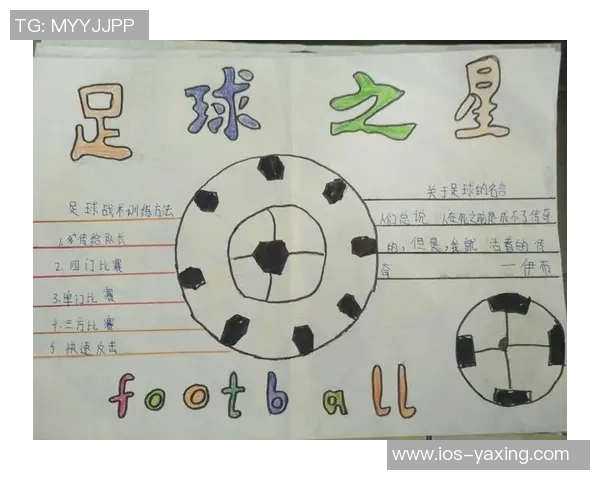 TG: MYYJJPP
足球之星
足球战术训练方法
1.传给队长
2.四门比赛
3.单门比赛
4.三方比赛
5.快速反击
关于足球的名言
人们总说 人在死之前是成不了传奇
的,但是,我就 活着的传
奇 一伊布
football
www.ios-yaxing.com